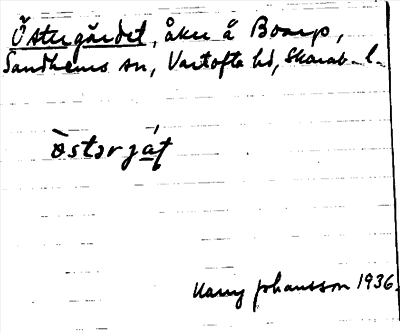 Östergärdet, åker å Boarp,
Sandhems sn, Vartofta hd, Skarab. l.
òstərjá̱t
Harry Johansson 1936.